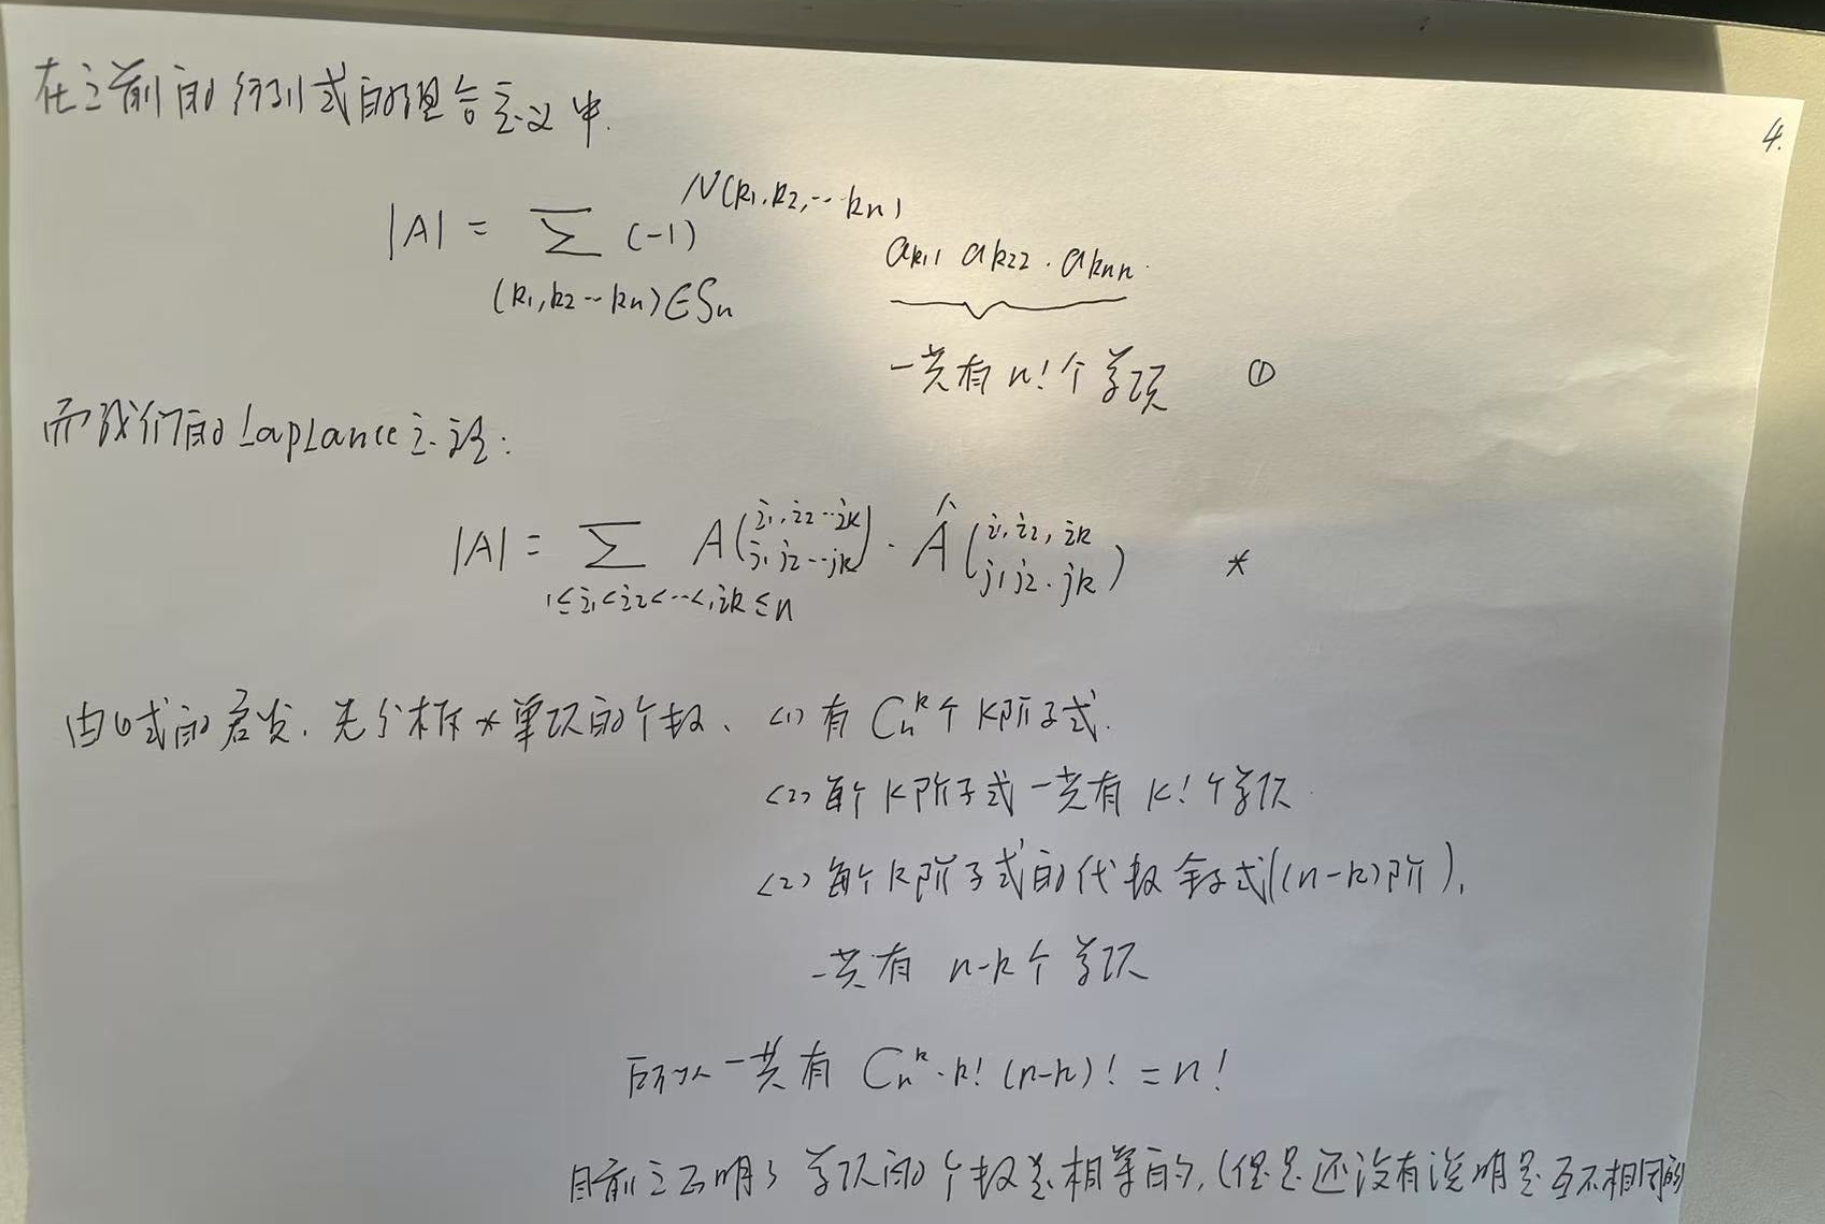 在之前的行列式的组合定义中.
4.
|A| = ∑ (-1)^{N(k₁,k₂,…kₙ)} a_{k₁1} a_{k₂2} · a_{kₙn}.
(k₁,k₂…kₙ)∈Sₙ
一共有 n! 个单项 ①
而我们的 Laplance 定理:
|A| = ∑ A(i₁,i₂…iₖ / j₁ j₂…jₖ) · Â(i₁ i₂, iₖ / j₁ j₂. jₖ) *
1≤i₁<i₂<…<iₖ≤n
由①式的启发. 先分析*单项的个数、<1> 有 Cₙᵏ个 k阶子式.
<2> 每个 k阶子式一共有 k! 个单项.
<2> 每个k阶子式的代数余子式((n-k)阶),
一共有 n-k个 单项
所以一共有 Cₙᵏ·k! (n-k)! = n!
目前证明了单项的个数是相等的,(但是还没有说明是互不相同的